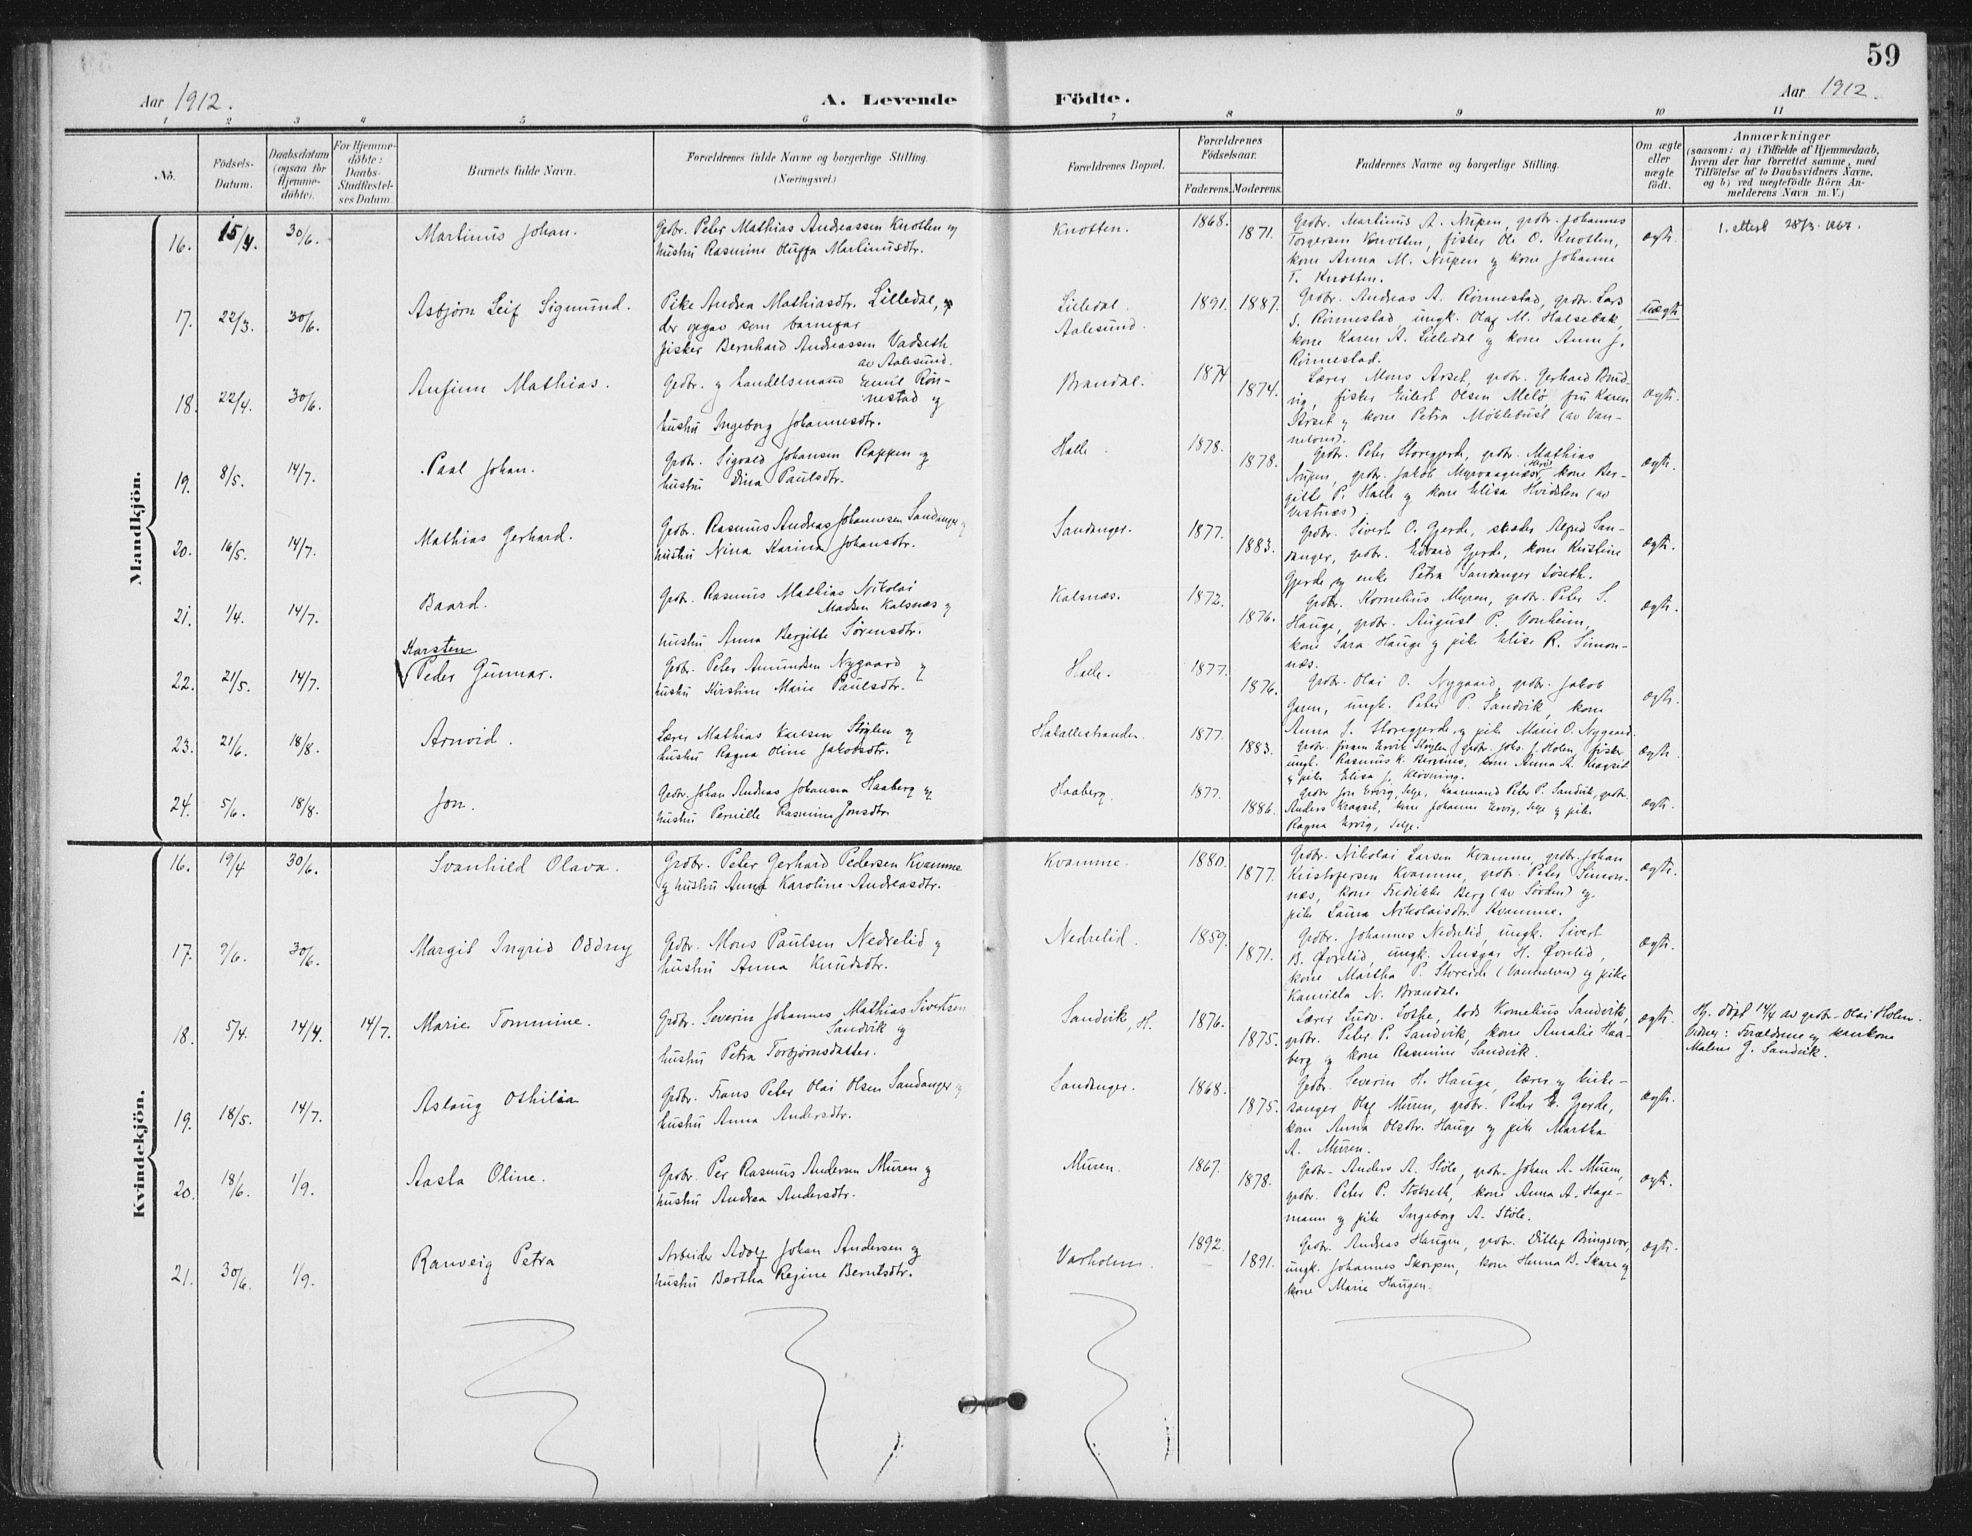 59
Aar 1912.
A. Levende Födte.
Aar 1912.
1 2 3 4 5 6 7 8 9 10 11
No.
Födsels-Datum.
Daabsdatum (ogsaa for Hjemmedöbte).
For Hjemmedöbte: Daabs-Stadfestelses Datum.
Barnets fulde Navn.
Forældrenes fulde Navne og borgerlige Stilling.
(Næringsvei.)
Forældrenes Bopæl.
Forældrenes Födselsaar.
Faderens. Moderens.
Faddernes Navne og borgerlige Stilling.
Om ægte eller uægte födt.
Anmærkninger
(saasom: a) i Tilfælde af Hjemmedaab, hvem der har forrettet samme, med Tilföielse af to Daabsvidners Navne, og b) ved uægtefödte Börn Anmelderens Navn m. V.)
Mandkjön.
16. 15/4 30/6. Martinus Johan.
Gbr. Peter Mathias Andreassen Knotten og
hustru Rasmine Oluffa Martinusdtr.
Knotten. 1868. 1871.
Grbr. Martinus A. Nupen, grbr. Johannes
Torgersen Knotten, fisker Ole O. Knotten,
kone Anna M. Nupen og kone Johanna
T. Knotten.
ægte.
1. attest 28/3. 1967.
17. 22/3. 30/6. Asbjørn Leif Sigmund.
Pike Andrea Mathiasdtr. Lilledal,
der opgav som barnefar
fisker Bernhard Andreassen Vadseth
av Aalesund.
Lilledal.
Aalesund.
1891. 1887.
Grbr. Andreas A. Rönnestad, grbr. Lars
S. Rönnestad, ungk. Olaf M. Halsebak,
kone Karen A. Lilledal og kone Anne J.
Rönnestad.
uægte
18. 22/4. 30/6. Anfinn Mathias.
Grbr. og handelsmand Emil Rön-
nestad og
hustru Ingeborg Johannesdtr.
Brandal. 1874 1874.
Lærer Mons Aarset, grbr. Gerhard
fisker Eilert Olsen Melö, fru Karen
Aarset og kone Petra Möklebust (av Van-
nelven).
ægte.
19. 8/5. 14/7. Paal Johan.
Grbr. Sigvald Johansen Rappen og
hustru Dina Paulsdtr.
Halle. 1878. 1878.
Grbr. Peter Storegjerde, grbr. Mathias
Nupen, grbr. Jakob Myrvaagnes, kone Ber-
gitte P. Halle og kone Elisa Hvidsten (av
Vestnæs).
ægte.
20. 16/5. 14/7. Mathias Gerhard.
Grbr. Rasmus Andreas Johannesen Sandanger og
hustru Nina Karina Johansdtr.
Sandanger. 1877. 1883.
Grbr. Sivert O. Gjerde, Alfred San-
danger, grbr. Edvard Gjerde, kone Kristine
Gjerde og enke Petra Sandanger Löseth.
ægte.
21. 1/4. 14/7. Baard.
Grbr. Rasmus Mathias Nikolai
Madsen Kalsnæs og
hustru Anna Bergitte Sörensdtr.
Kalsnæs. 1872. 1876.
Grbr. Kornelius Myren, grbr. Peter S.
Hauge, grbr. August P. Vonheim,
kone Sara Hauge og pike Elise R. Simon-
næs.
ægte.
22. 21/5. 14/7. Karsten
Peder Gunnar.
Grbr. Peter Amundsen Nygaard og
hustru Kirstine Marie Paulsdtr.
Halle. 1877. 1876.
Grbr. Olai O. Nygaard, grbr. Jakob
ungk. Peter P. Sandvik, kone
Anna J. Storegjerde og pike Marie O. Nygaard.
ægte.
23. 21/6. 18/8. Arnvid.
Lærer Mathias Karlsen Stöylen og
hustru Ragna Oline Jakobsdtr.
Hakallestranden 1877. 1883.
Stöylen, grbr. Johs. J. Holen, fisker
ungk. Rasmus K. kone Anna A. Kragset
og pike Elisa J. Klövning.
ægte.
24. 5/6. 18/8. Jon.
Grbr. Johan Andreas Johansen Haaberg og
hustru Pernille Rasmine Jonsdtr.
Haaberg. 1877. 1886.
Grbr. Jon Ervig, Selje, kaarmand Peter P. Sandvik, grbr.
Anders Kragset, kone Johanne Ervig, Selje og pike
Ragna Ervig, Selje.
ægte.
Kvindekjön.
16. 19/4 30/6. Svanhild Olava.
Grbr. Peter Gerhard Pedersen Kvamme
og hustru Anna Karoline Andreasdtr.
Kvamme. 1880. 1877.
Grbr. Nikolai Larsen Kvamme, grbr. Johan
Kristofersen Kvamme, grbr. Peter Simon-
næs, kone Fredrikke Berg (av Sörden) og
pike Laura Nikolaisdtr. Kvamme.
ægte.
17. 9/6. 30/6. Margit Ingrid Oddny
Grbr. Mons Paulsen Nedrelid og
hustru Anna Knudsdtr.
Nedrelid. 1859. 1871.
Grbr. Johannes Nedrelid, ungk. Sivert
B. Øvrelid, ungk. Ansgar H. Øvrelid,
kone Martha P. Storeide (Vannelven) og pike
Kamilla N. Brandal.
ægte.
18. 5/4. 14/4 14/7. Marie Tommine.
Grbr. Severin Johannes Mathias Sivertsen
Sandvik og
hustru Petra Torbjörnsdatter.
Sandvik, H. 1876. 1875.
Lærer Ludv. lods Kornelius Sandvik,
grbr. Peter P. Sandvik, kone Amalie Haa-
berg og kone Rasmine Sandvik.
ægte.
Hj. döpt 14/4 av grbr. Olai Holen.
Vidner: Forældrene og kaarkone
Malene J. Sandvik.
19. 18/5. 14/7. Aslaug Othilia
Grbr. Frans Peter Olai Olsen Sandanger og
hustru Anna Andersdtr.
Sandanger. 1868. 1875.
Grbr. Severin H. Hauge, lærer og kirke-
sanger Olaf Muren, grbr. Peder E. Gjerde,
kone Anna Olsdtr. Hauge og pike Martha
A. Muren.
ægte.
20. 18/6. 1/9. Aasta Oline.
Grbr. Per Rasmus Andersen Muren og
hustru Andrea Andersdtr.
Muren. 1867. 1878.
Grbr. Anders A. Stöle, grbr. Johan A. Muren,
grbr. Peter P. Stokseth, kone Anna A. Hage-
mann og pike Ingeborg A. Stöle.
ægte.
21. 30/6. 1/9. Ranveig Petra
Arbeider Adolf Johan Andersen og
hustru Bertha Regine Berntsdtr.
Varholm. 1892. 1891.
Grbr. Andreas Haugen, grbr. Ditlef Bringsvor,
ungk. Johannes Skorpen, kone Hanna B. Skare og
kone Marie Haugen.
ægte.